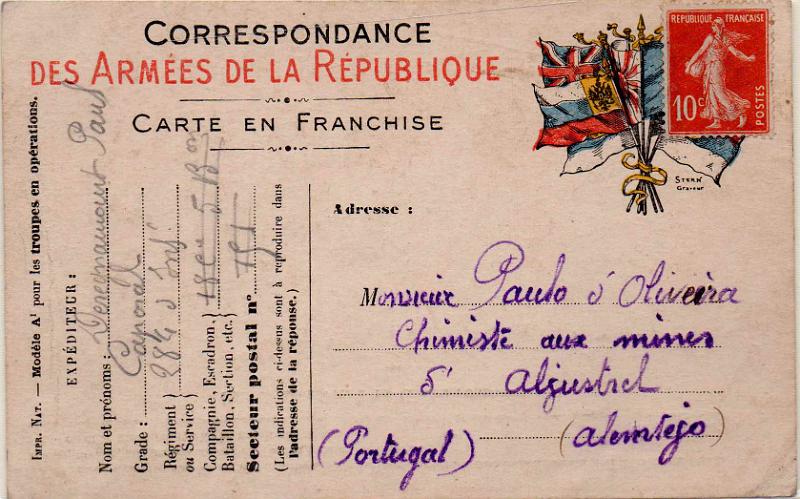 CORRESPONDANCE
DES ARMÉES DE LA RÉPUBLIQUE
CARTE EN FRANCHISE
RÉPUBLIQUE FRANÇAISE
10c
POSTES
STERN
Graveur
IMPR. NAT. — Modèle A¹ pour les troupes en opérations.
EXPÉDITEUR:
Nom et prénoms: Paul
Grade: Caporal
Régiment ou Service) 284 d'Inf
Compagnie, Escadron,
Bataillon, Section, etc.) 18e
Secteur postal n°
(Les indications ci-dessus sont à reproduire dans
l'adresse de la réponse.)
Adresse:
Monsieur Paulo d'Oliveira
Chimiste aux mines
d'Aljustrel
(Portugal) (alemtejo)